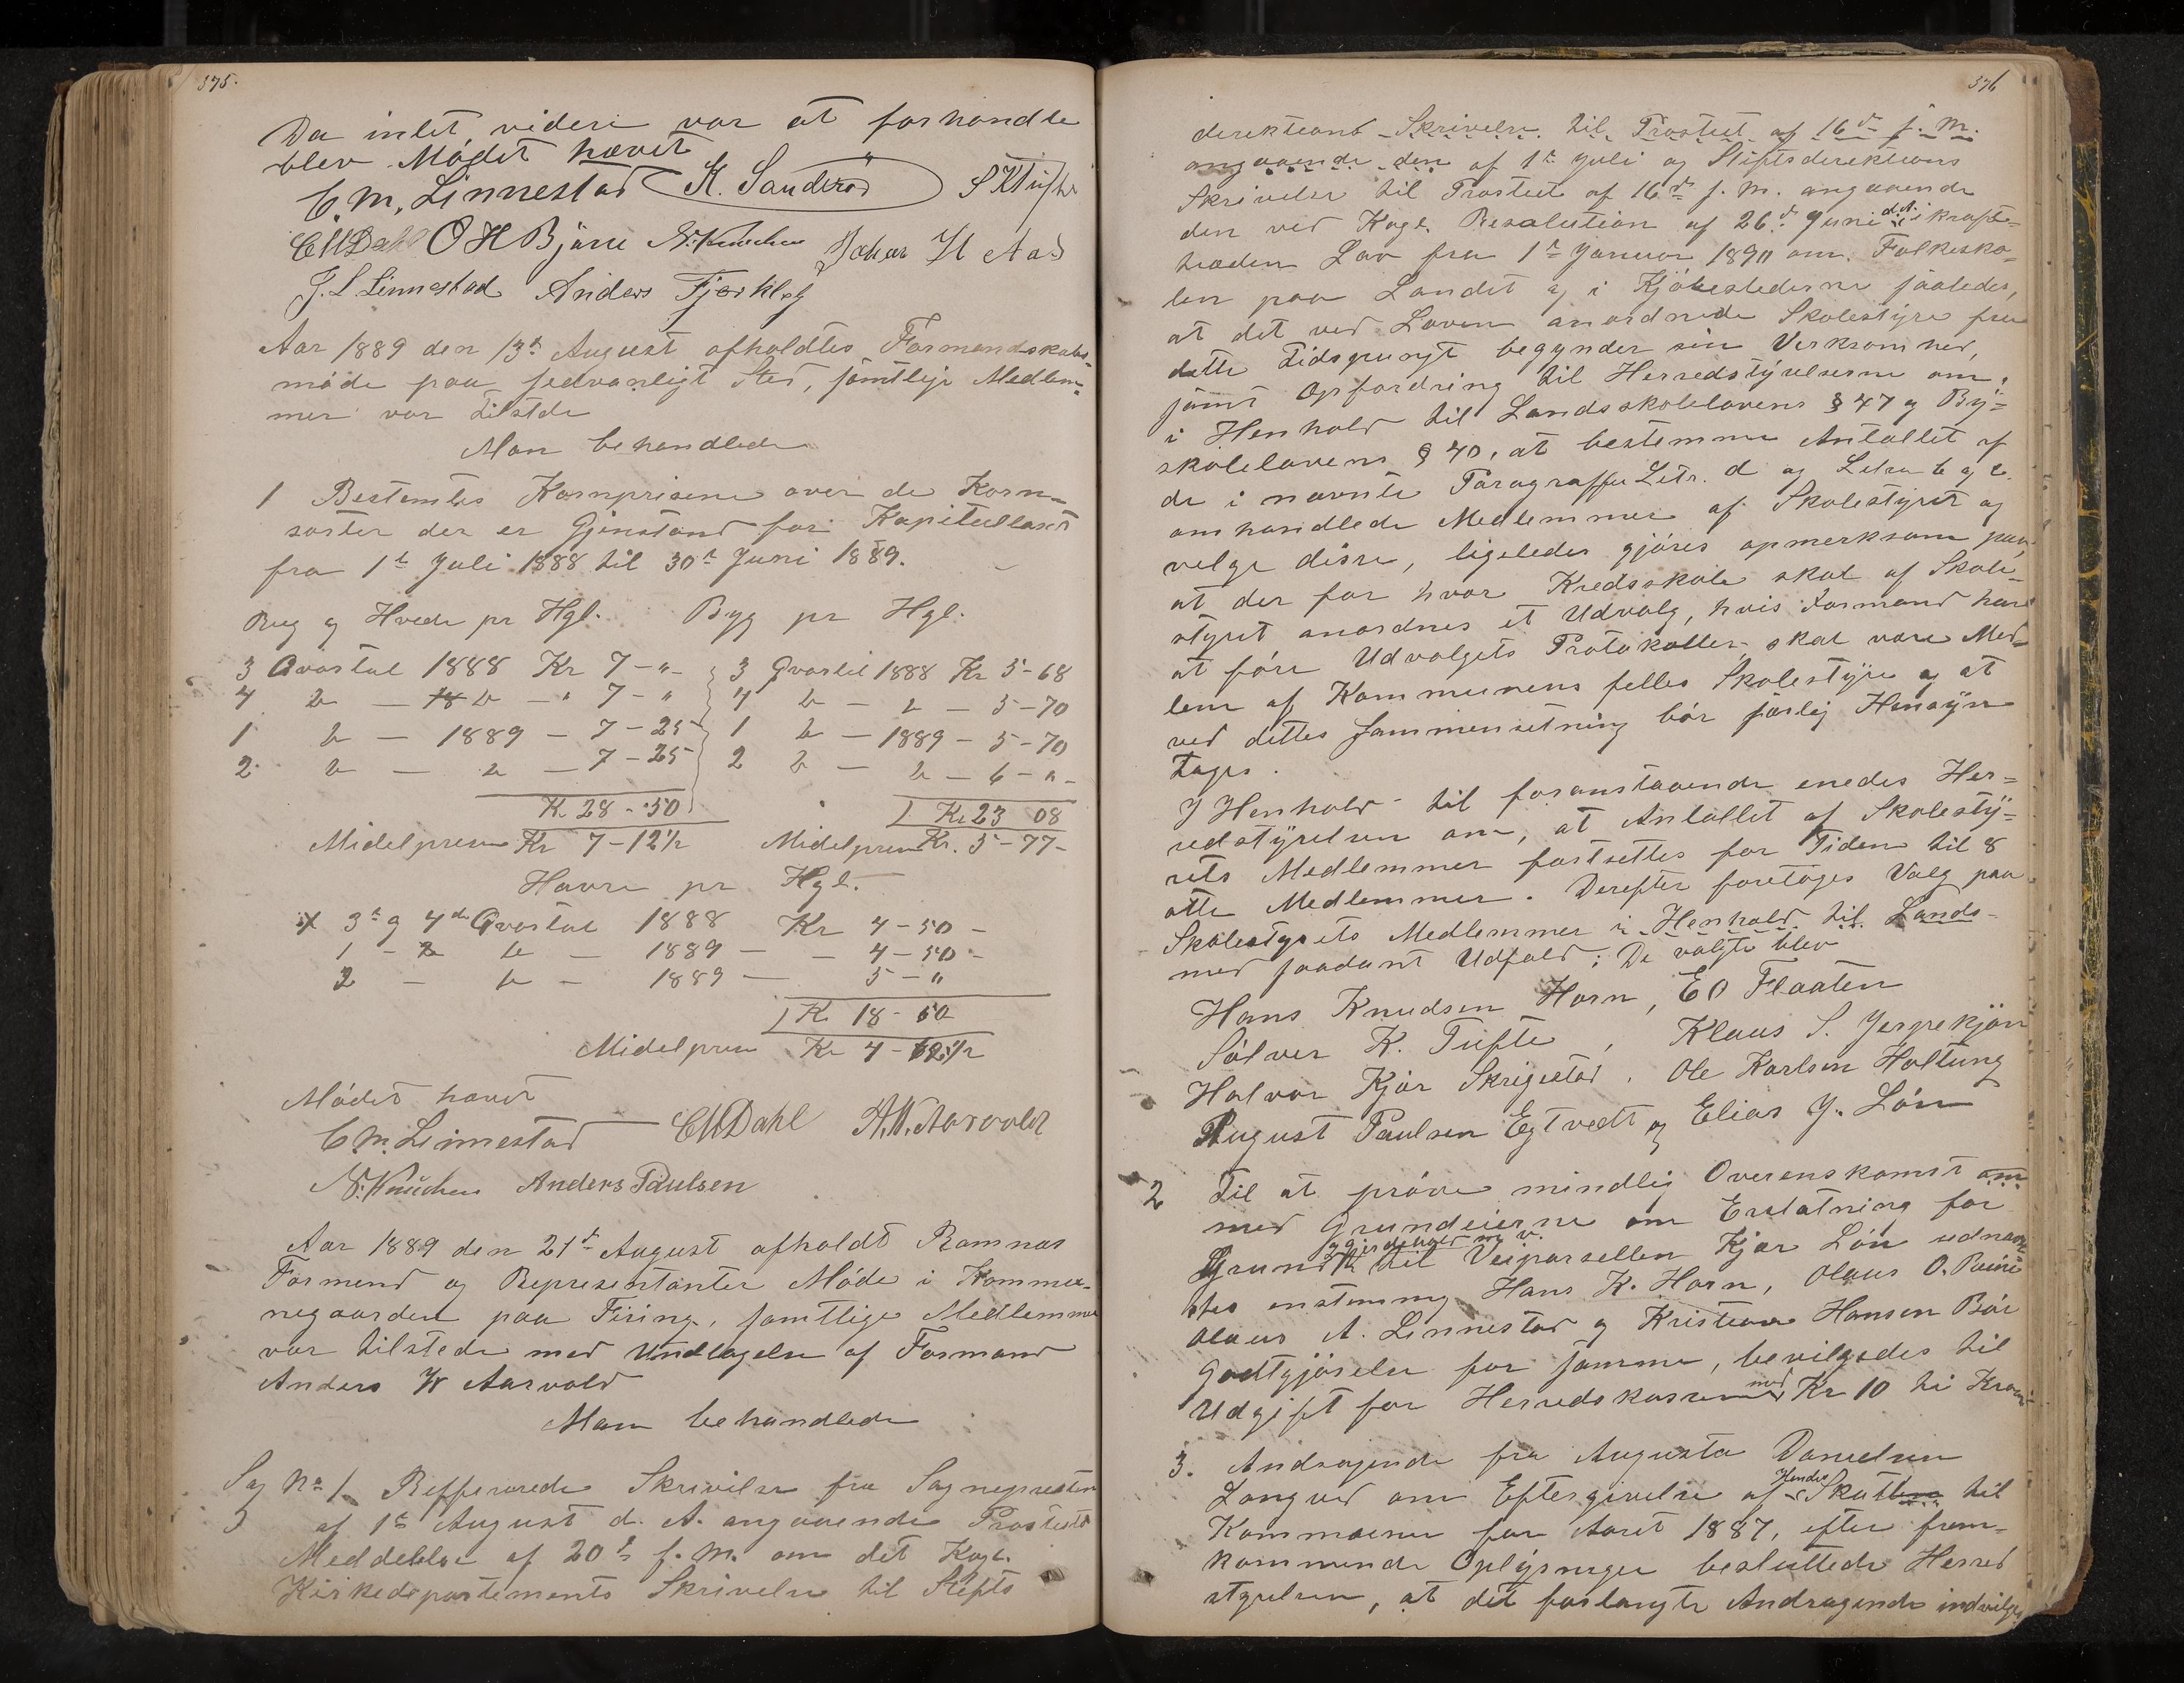 375.
Da intet videre var at forhandle
blev Mødet hævet
C. M. Linnestad K. Sanderød S K Tufte
CMDahl O H Bjørre N. Knudsen Johan H Aas
J. L Linnestad Anders Fjærkleg
Aar 1889 den 13de August afholdtes Formandskabs-
møde paa sedvanligt Sted, samtlige Medlem-
mer var tilstede
Man behandlede
1 Bestemtes Kornprisene over de Korn-
sorter der er Gjenstand for Kapiteltaxt
fra 1te Juli 1888 til 30te Juni 1889.
Rug og Hvede pr Hgl. Byg pr Hgl.
3 Qvartal 1888 Kr 7 - " - 3 Qvartal 1888 Kr 5-68
4 do — do - " 7 - " 4 do — do — 5-70
1 do — 1889 — 7-25 1 do — 1889 — 5-70
2 do — do — 7-25 2 do — do — 6 - " -
Kr 28-50 Kr 23 08
Midelprisen Kr 7-12½ Midelprisen Kr. 5-77-
Havre pr Hgl.
3te og 4de Qvartal 1888 Kr 4-50-
1 - do — 1889 — - 4-50-
2 — do — 1889 — 5 - "
Kr 18-50
Midelprisen Kr 4-62½
Mødet hævet
C. M. Linnestad CMDahl A. W. Aarvold
N. Knudsen Anders Paulsen
Aar 1889 den 21de August afholdt Ramnæs
Formend og Representanter Møde i Kommu-
negaarden paa Firing, samtlige Medlemmer
var tilstede med Undtagelse af Formand
Anders W Aarvold
Man behandlede
Sag No 1 Refferrerede Skrivelse fra Sognepresten
af 1te August d. A. angaaende Prostets
Meddelelse af 20de f. M. om det Kngl.
Kirkedepartements Skrivelse til Stifts
376
direktionens Skrivelse til Prostiet af 16de f. M.
angaaende den af 1te Juli og Stiftsdirektions
Skrivelse til Prostiet af 16de f. M. angaaende
den ved Kngl. Resolution af 26de Juni d.A. ikraft-
træden Lov fra 1te Januar 1890 om Folkesko-
len paa Landet og i Kjøbestederne saaledes,
at det ved Loven anordnede Skolestyre fra
dette Tidspungt begynder sin Verksomhed,
samt Opfordring til Herredstyrelserne om,
i Henhold til Landsskolelovens § 47 og By-
skolelovens § 40, at bestemme Antallet af
de i nævnte Paragraffer Litr. d og Litra b og c
omhandlede Medlemmer af Skolestyret og
velge disse, ligeledes gjøres opmerksom paa,
at der for hvor Kredsskole skal af Skole-
styret anordnes et Udvalg, hvis Formand har
at føre Udvalgets Protokoller, skal være Med-
lem af Kommunens felles Skolestyre og at
ved dettes Sammensetning bør særlig Hensyn
tages.
I Henhold til foranstaaende enedes Her-
redstyrelsen om, at Antallet af Skolesty-
rets Medlemmer fastsettes for Tiden til 8
otte Medlemmer. Derefter foretoges Valg paa
Skolestyrets Medlemmer i Henhold til Lands-
med saadant Udfald: De valgte blev
Hans Knudsen Horn, E O Flaaten
Sølver K. Tufte, Klaus S. Jerpekjøn
Halvor Kjær Skrigestad, Ole Karlsen Holtung
August Paulsen Egtvedt og Elias J. Løn
2 Til at prøve mindlig Overenskomst om
med Grundeierne om Erstatning for
Grund og Gjerdehold m. v. til Veiparsellen Kjær Løn udnævn-
tes enstemmig Hans K. Horn, Olaus O.
Olaus A. Linnestad og Kristian Hansen Bør
Godtgjørelse for samme, bevilgedes til
Udgift for Herredskassen med Kr 10 ti Kroner
3. Andragende fra Augusta Danielsen
Langved om Eftergivelse af Hendes Skatten til
Kommunen for Aaret 1887, efter frem-
kommende Oplysninger besluttede Herred
styrelsen, at det forlangte Andragende indvilges